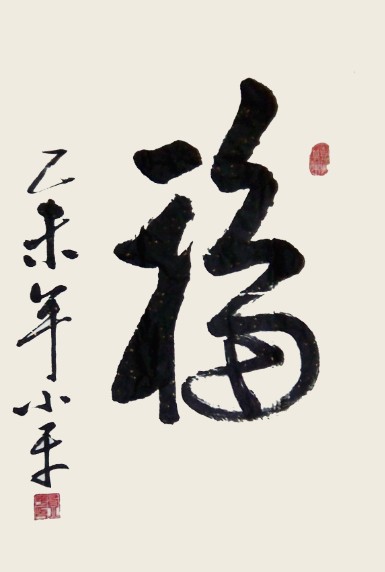 福
乙未年小平